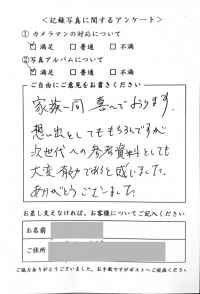 ＜記録写真に関するアンケート＞
①カメラマンの対応について
☑満足 □普通 □不満
②写真アルバムについて
☑満足 □普通 □不満
ご自由にご意見をお書きください
家族一同 喜んでおります。
想い出としてももちろんですが、
次世代への参考資料としても
大変有効であると感じました。
ありがとうございました
お差し支えなければ、お客様についてご記入ください
お名前
ご住所
ご協力ありがとうございました。お手数ですがポストへご投函ください